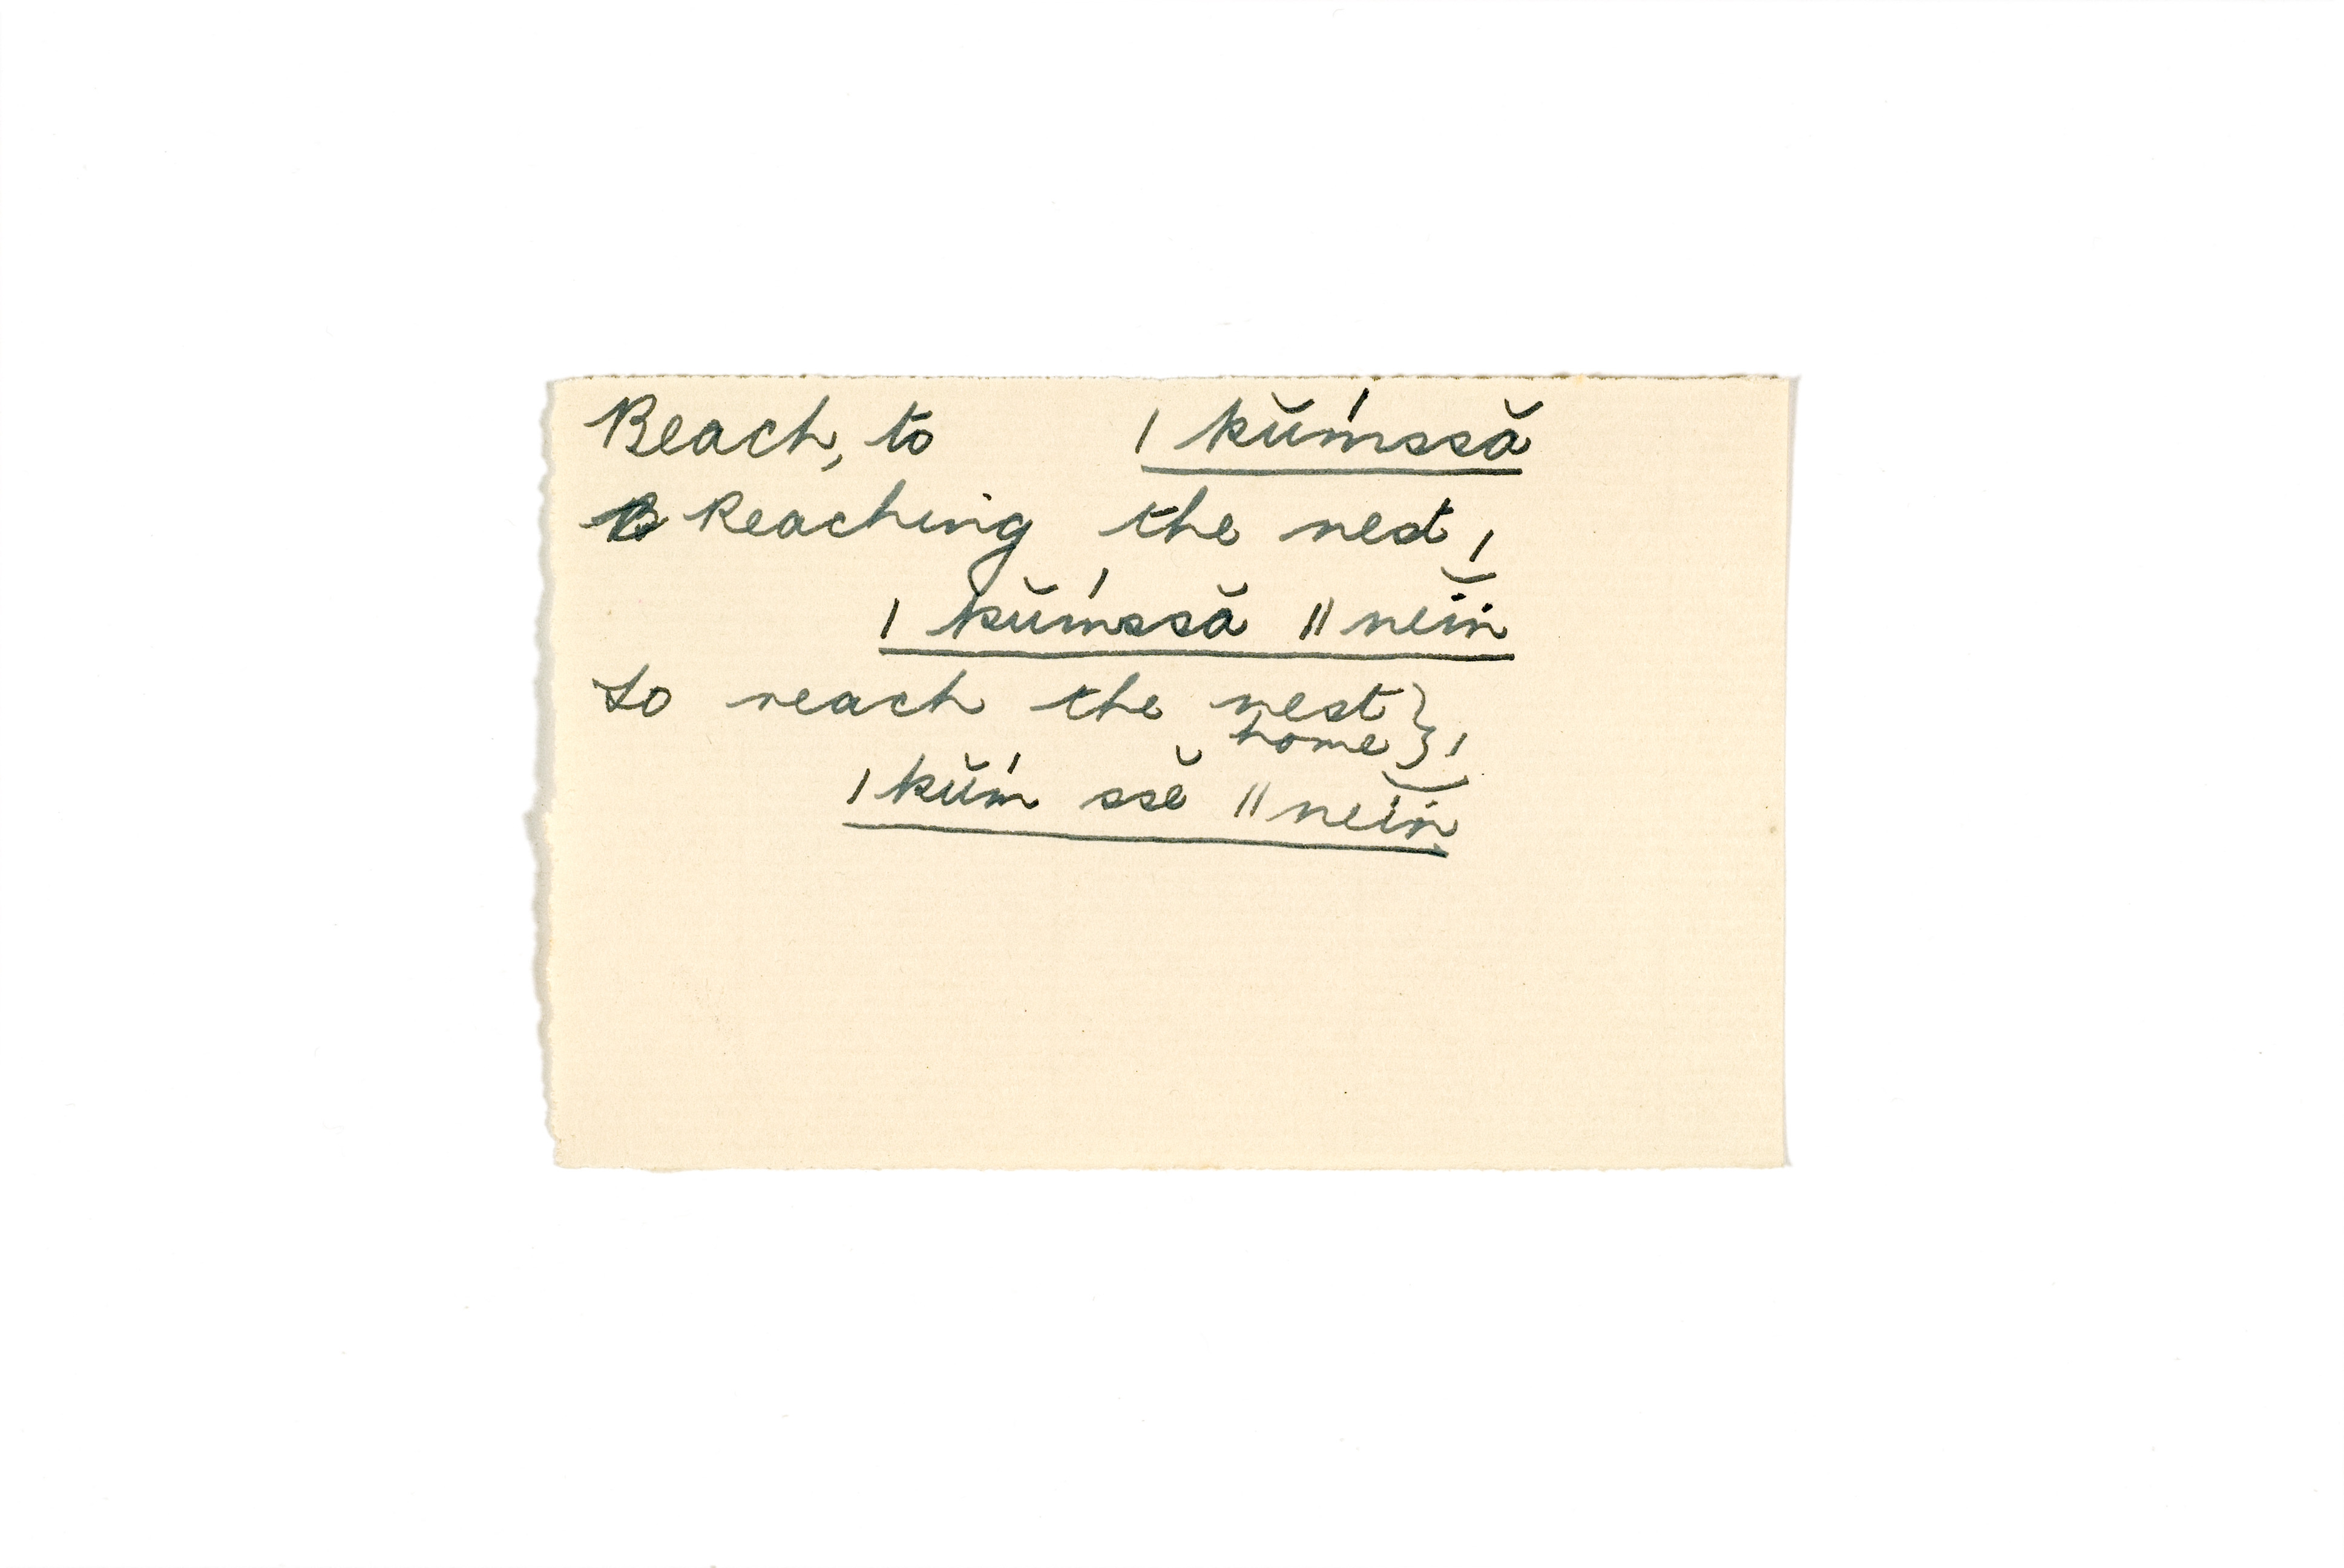 Beach, to | kŭḿssă
Reaching the nest,
| kŭḿssă || neĭń
to reach the nest }
home } ,
| kŭḿ ssĕ || neĭń